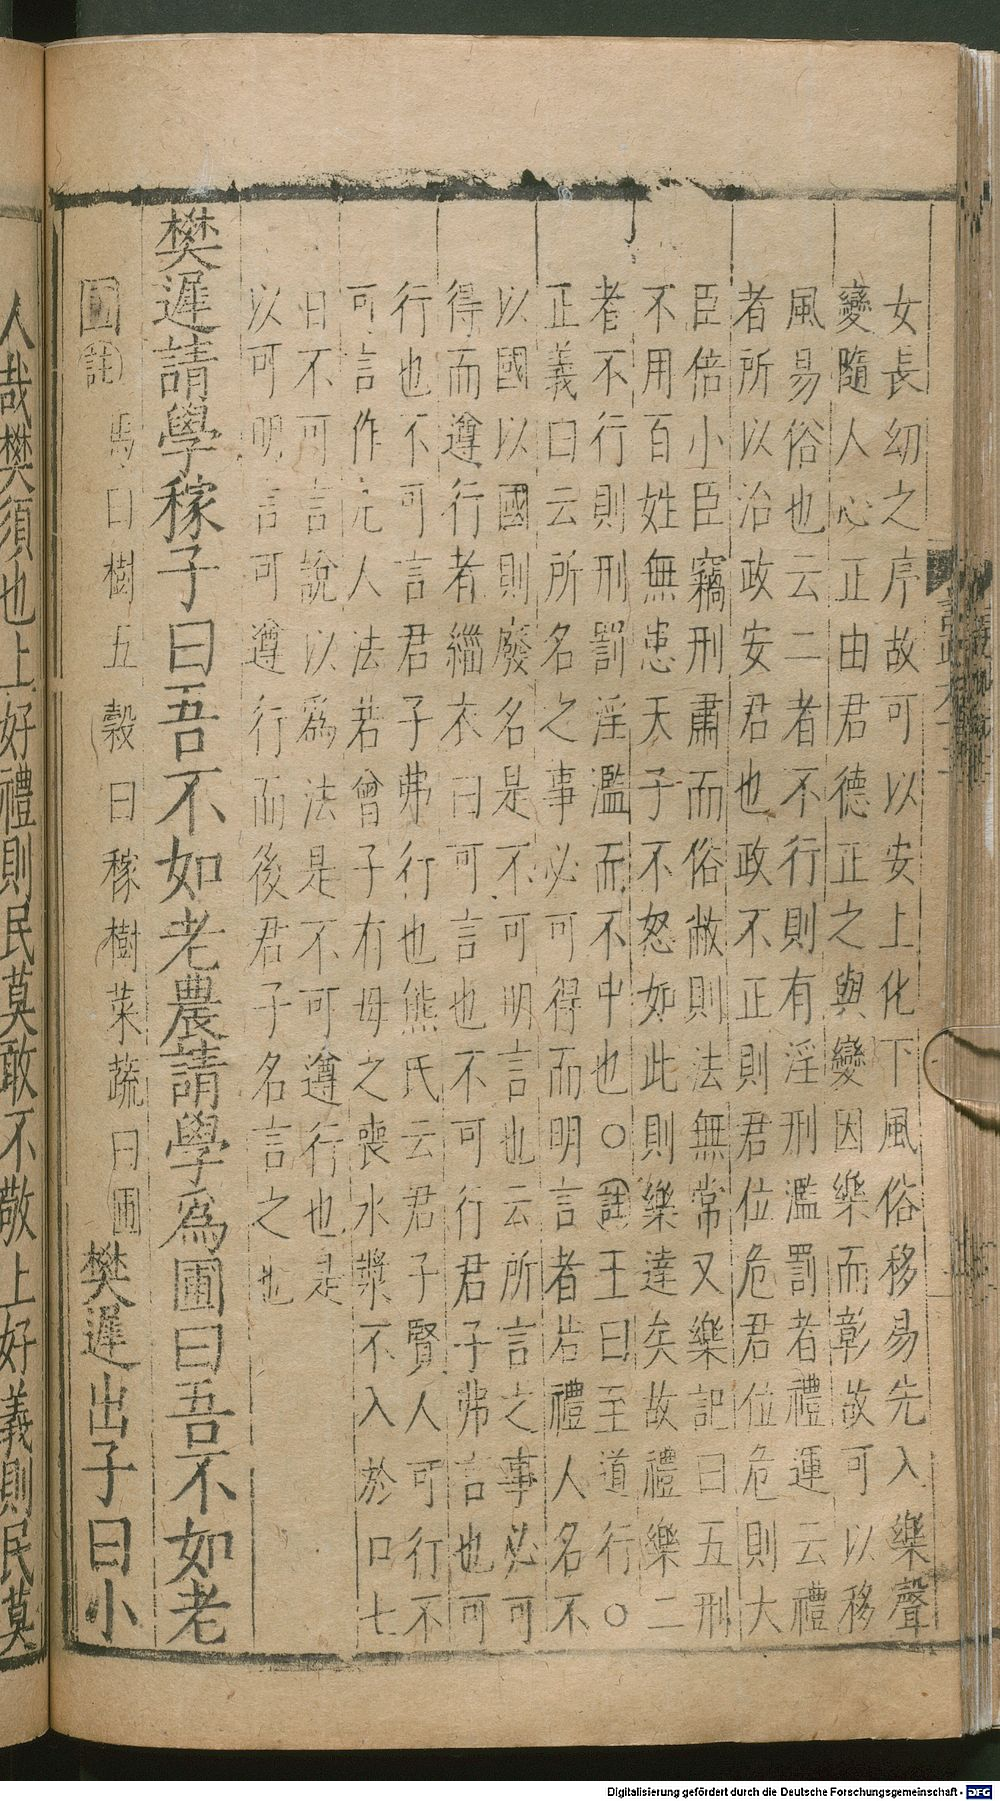 女長幼之序故可以安上化下風俗移易先入樂聲
變隨人心正由君德正之與變因樂而彰故可以移
風易俗也云二者不行則有淫刑濫罰者禮運云禮
者所以治政安君也政不正則君位危君位危則大
臣倍小臣竊刑肅而俗敝則法無常又樂記曰五刑
不用百姓無患天子不怒如此則樂達矣故禮樂二
者不行則刑罰淫濫而不中也○註王曰至道行○
正義曰云所名之事必可得而明言者若禮人名不
以國以國則廢名是不可明言也云所言之事必可
得而遵行者緇衣曰可言也不可行君子弗言也可
行也不可言君子弗行也熊氏云君子賢人可行不
可言作凡人法若曾子有母之喪水漿不入於口七
日不可言說以為法是不可遵行也是
以可明言可遵行而後君子名言之也
樊遲請學稼子曰吾不如老農請學爲圃曰吾不如老
圃註馬曰樹五穀曰稼樹菜蔬曰圃樊遲出子曰小
人哉樊須也上好禮則民莫敢不敬上好義則民莫